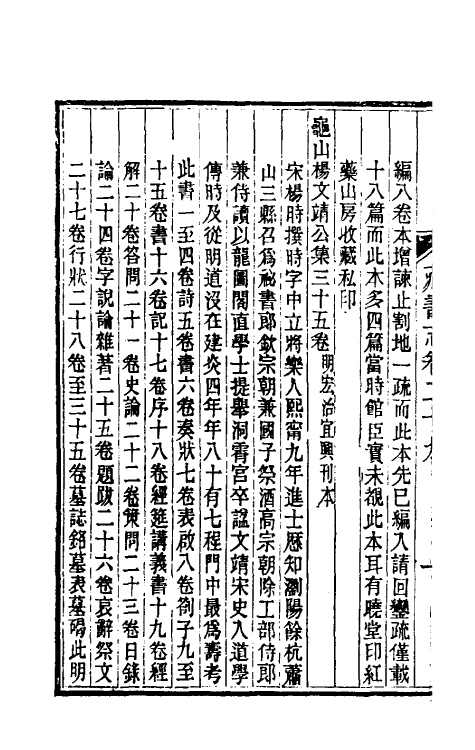 編八卷本增諫止割地一疏而此本先已編入請回鑾疏僅載
十八篇而此本多四篇當時館臣實未覩此本耳有曉堂印紅
藥山房收藏私印
龜山楊文靖公集三十五卷 明宏治宜興刊本
宋楊時撰時字中立將樂人熙甯九年進士歷知瀏陽餘杭蕭
山三縣召爲祕書郎欽宗朝兼國子祭酒高宗朝除工部侍郎
兼侍讀以龍圖閣直學士提舉洞霄宮卒諡文靖宋史入道學
傳時及從明道沒在建炎四年年八十有七程門中最爲壽考
此書一至四卷詩五卷書六卷奏狀七卷表啟八卷劄子九至
十五卷書十六卷記十七卷序十八卷經筵講義書十九卷經
解二十卷答問二十一卷史論二十二卷策問二十三卷日錄
論二十四卷字說論雜著二十五卷題跋二十六卷哀辭祭文
二十七卷行狀二十八卷至三十五卷墓誌銘墓表墓碣此明